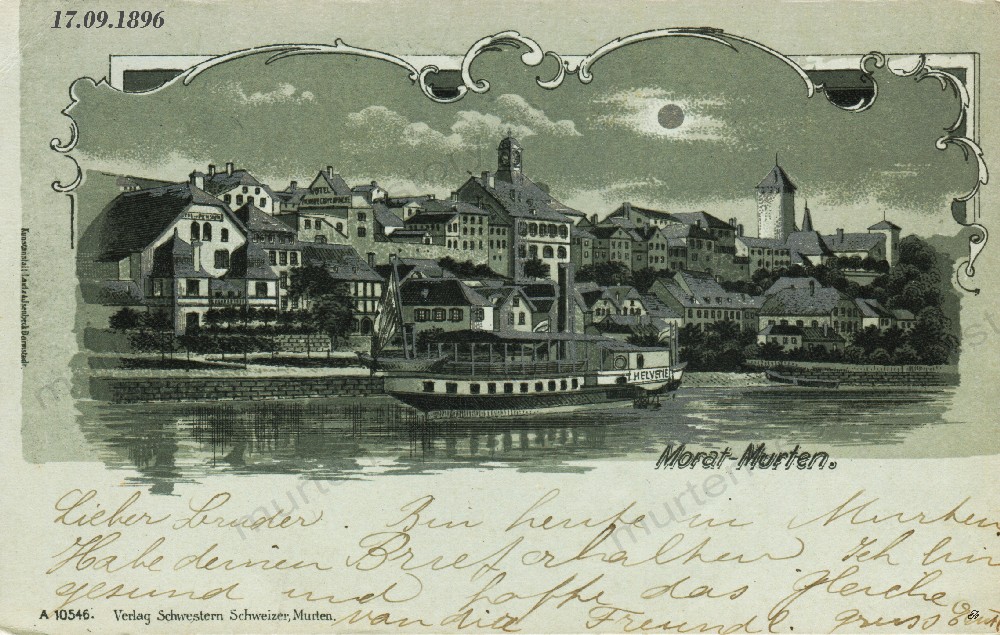 17.09.1896
HOTEL
HELVETIE
Morat-Murten.
Lieber Bruder. Bin heute in Murten
Habe deinen Brief erhalten Ich bin
gesund und hoffe das gleiche
von dir Freundl. gruss
A 10546. Verlag Schwestern Schweizer, Murten.